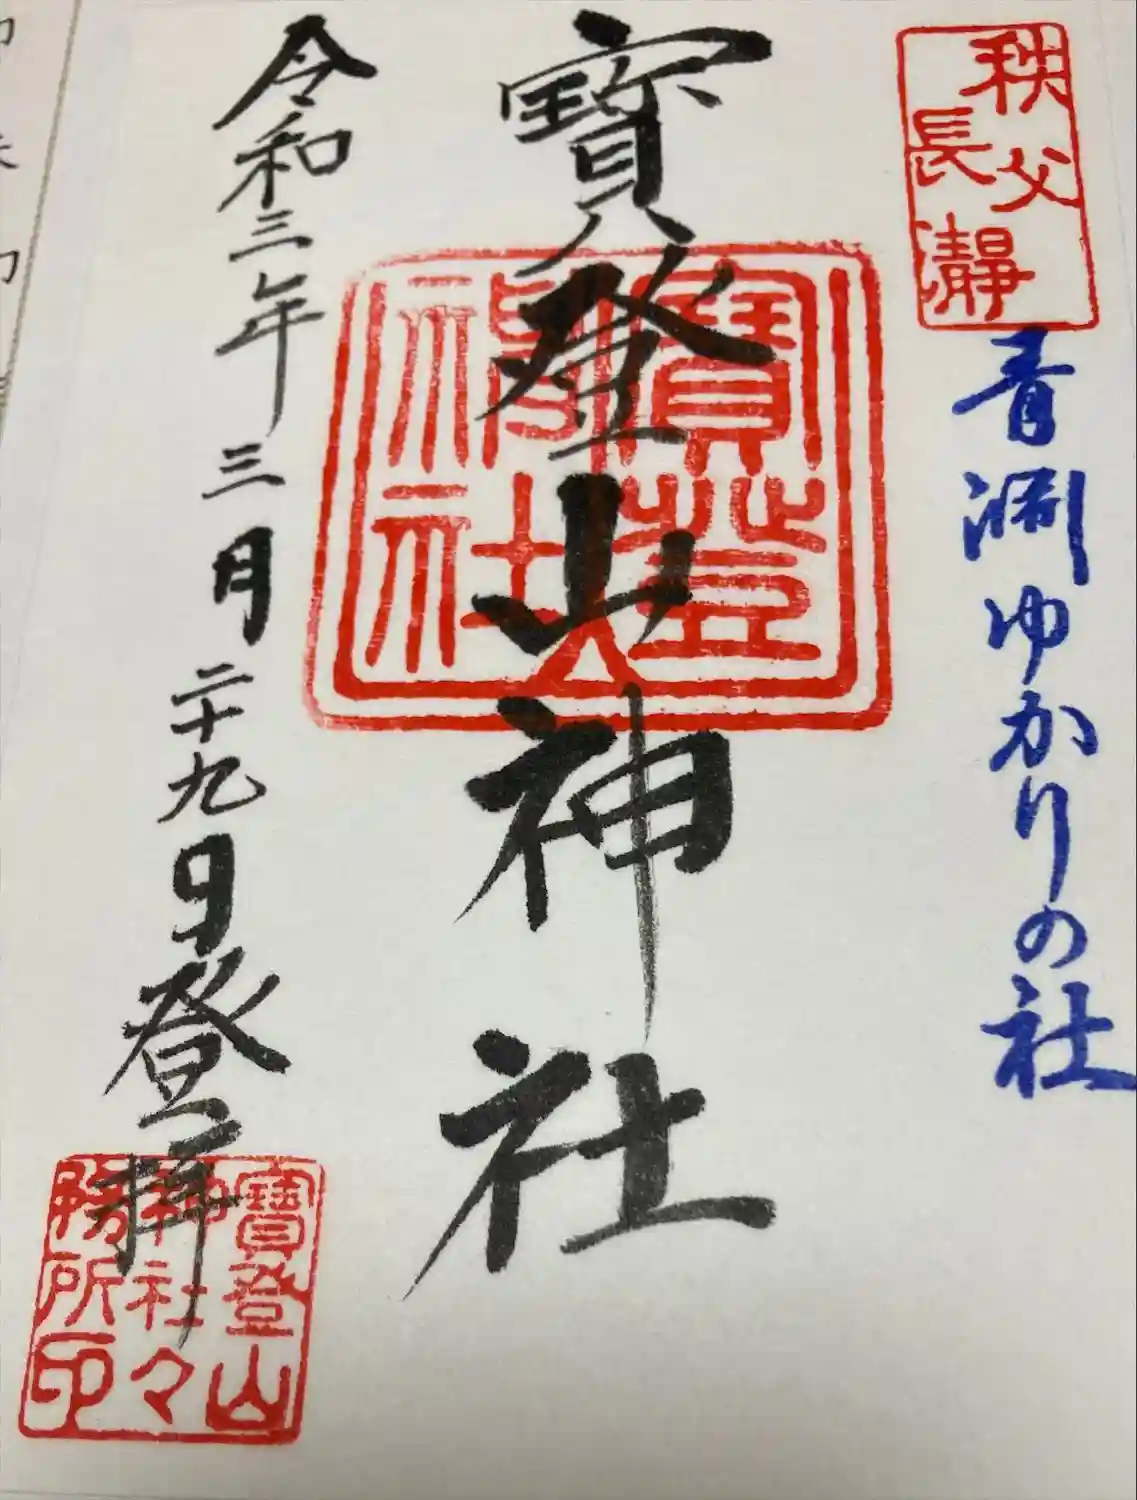 秩父
長瀞
青淵ゆかりの社
寳登山神社
寳登山
神社
令和三年三月二十九日登拝
寳登山
神社々
務所印